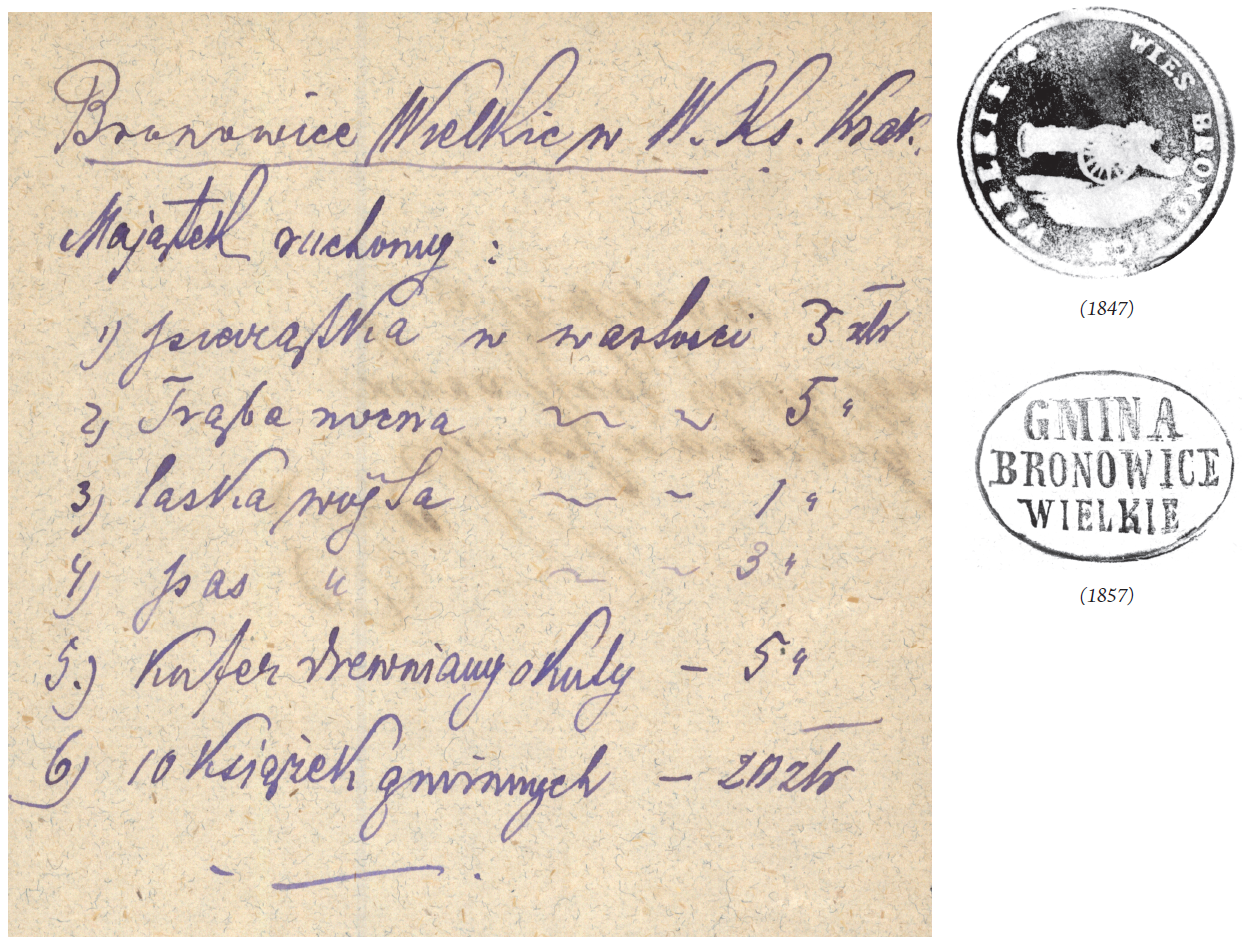 Bronowice Wielkie w W. Ks. Krak.
Majątek ruchomy :
1) pieczątka w wartości 3 złr
2) Trąba nocna 〃 〃 5 "
3) laska wójta 〃 〃 1 "
4) pas " 〃 〃 3 "
5.) Kufer drewniany okuty – 5 "
6) 10 Książek gminnych – 20 złr
WIEŚ BRONOWICE WIELKIE
(1847)
GMINA
BRONOWICE
WIELKIE
(1857)